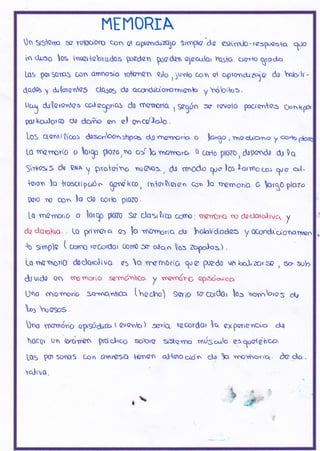 MEMORIA
Un sistema se relaciona con el aprendizaje simple de estimulo-respuesta que
incluso los invertebrados pueden pueden ejecutar hasta cierto grado
Las personas con amnesia retienen esto, junto con el aprendizaje de habili-
dades y diferentes clases de acondicionamiento y hábitos.
Hay diferentes categorias de memoria, según se revela pacientes con tipos
particulares de daño en el encéfalo.
Los científicos describen tipos de memoria a largo, mediano y corto plazo
La memoria a largo plazo, no así la memoria a corto plazo, depende de la
Síntesis de RNA y proteína nuevas, de modo que los fármacos que al-
teran la trascripción genética, interfieren con la memoria a largo plazo
pero no con la de corto plazo.
La memoria a largo plazo se clasifica como: memoria no declarativa y
declarativa. La primera es la memoria de habilidades y acondicionamien
to simple (como recordar como se atan los zapatos).
La memoria declarativa es la memoria que puede verbalizarse, se sub
divide en memoria semántica y memoria episódica.
Una memoria semántica (hecho) sería recordar los nombres de
los huesos.
Una memoria episódica (evento) sería recordar la experiencia de
hacer un exámen práctico sobre sistema músculo esquelético.
Las personas con amnesia tienen alteración de la memoria decla-
rativa.